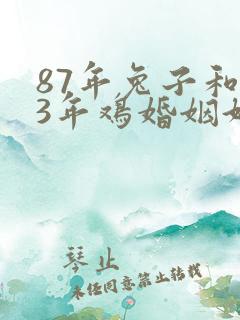 87年兔子和
3年鸡婚姻
琴止
未经同意禁止转载